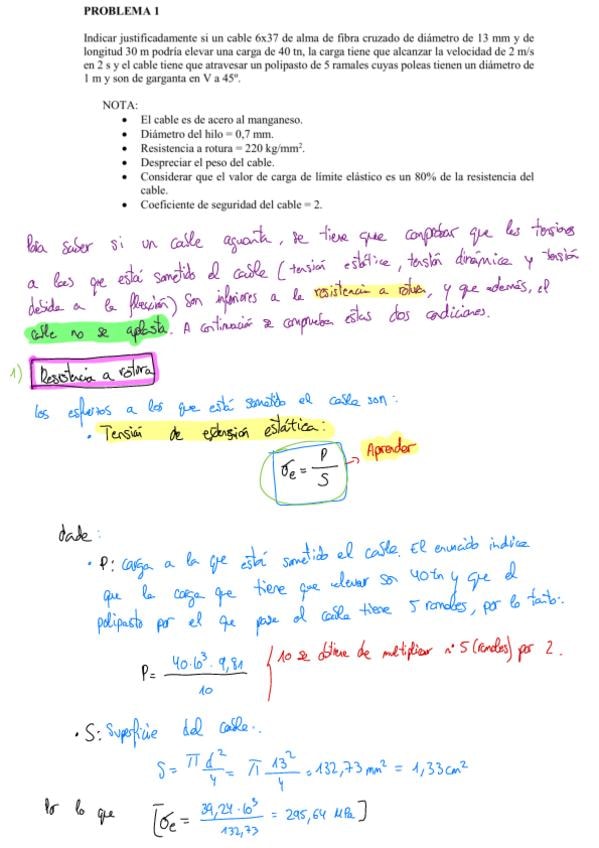 PROBLEMA 1
Indicar justificadamente si un cable 6x37 de alma de fibra cruzado de diámetro de 13 mm y de
longitud 30 m podría elevar una carga de 40 tn, la carga tiene que alcanzar la velocidad de 2 m/s
en 2 s y el cable tiene que atravesar un polipasto de 5 ramales cuyas poleas tienen un diámetro de
1 m y son de garganta en V a 45º.
NOTA:
• El cable es de acero al manganeso.
• Diámetro del hilo = 0,7 mm.
• Resistencia a rotura = 220 kg/mm².
• Despreciar el peso del cable.
• Considerar que el valor de carga de límite elástico es un 80% de la resistencia del
cable.
• Coeficiente de seguridad del cable = 2.
Para saber si un cable aguanta, se tiene que comprobar que las tensiones
a las que está sometido el cable (tensión estática, tensión dinámica y tensión
debida a la flexión) son inferiores a la resistencia a rotura, y que además, el
cable no se aplasta. A continuación se comprueban estas dos condiciones.
1) Resistencia a rotura
Los esfuerzos a los que está sometido el cable son:
• Tensión de extensión estática:
σe = P/S → Aprender
dade:
• P: carga a la que está sometido el cable. El enunciado indica
que la carga que tiene que elevar son 40 tn y que el
polipasto por el que pasa el cable tiene 5 ramales, por lo tanto:
P = 40·10³ · 9,81 / 10 { 10 se obtiene de multiplicar nº 5 (ramales) por 2.
• S: Superficie del cable:.
S = π d²/4 = π 13²/4 = 132,73 mm² = 1,33 cm²
Por lo que [σe = 39,24·10³ / 132,73 = 295,64 MPa]